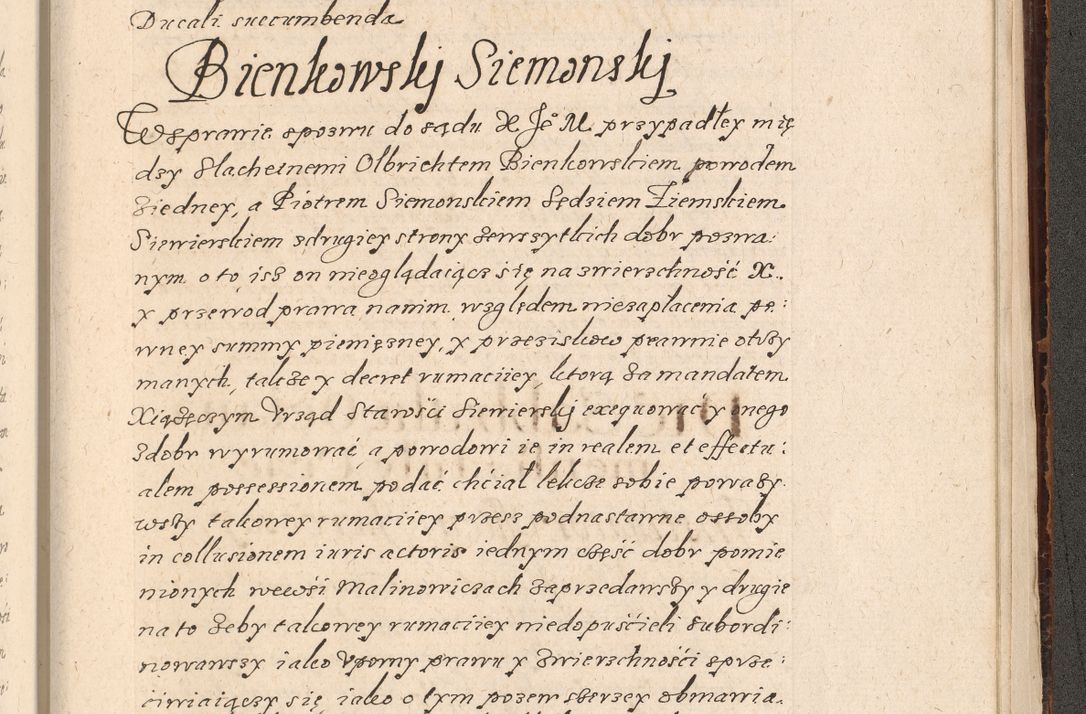 Ducali succumbenda
Bienkowskj Siemonskj
W sprawie s pozwu do sądu X Je° M przypadłey mię
dzy Slachetnemi Olbrichtem Bienkowskiem powodem
ziedney, a Piotrem Siemonskiem Sędziem Ziemskiem
Siewierskiem zdrugiey strony zewszytkich dobr pozwa:
nym o to, isz on nieoglądaiącz się na zwierzchność X.
y przewod prawa, namim względem niezapłacenia pe:
wney summy pieniężney, y przeziskow prawnie otrzy
manych, także y decret rumaciiey, ktorą za mandatem
Xiążęczym Vrząd Starośći Siewierskj exequowacz y onego
z dobr wyrumować, a powodowi ie in realem et effectu:
alem possessionem podać chciał lekcze sobie poważy
wszy takowey rumaciiey przesz podnastawne ossoby
in collusionem iuris actoris iednym część dobr pomie
nionych wewśi Malinowiczach zaprzedawszy y drugie
na to żeby takowey rumaciiey niedopuśćieli subordi:
nowawszy iako Vporny prawu y zwierzchnośći sprze:
ciwiaiączy się iako o tym pozew szerzey obmawia.